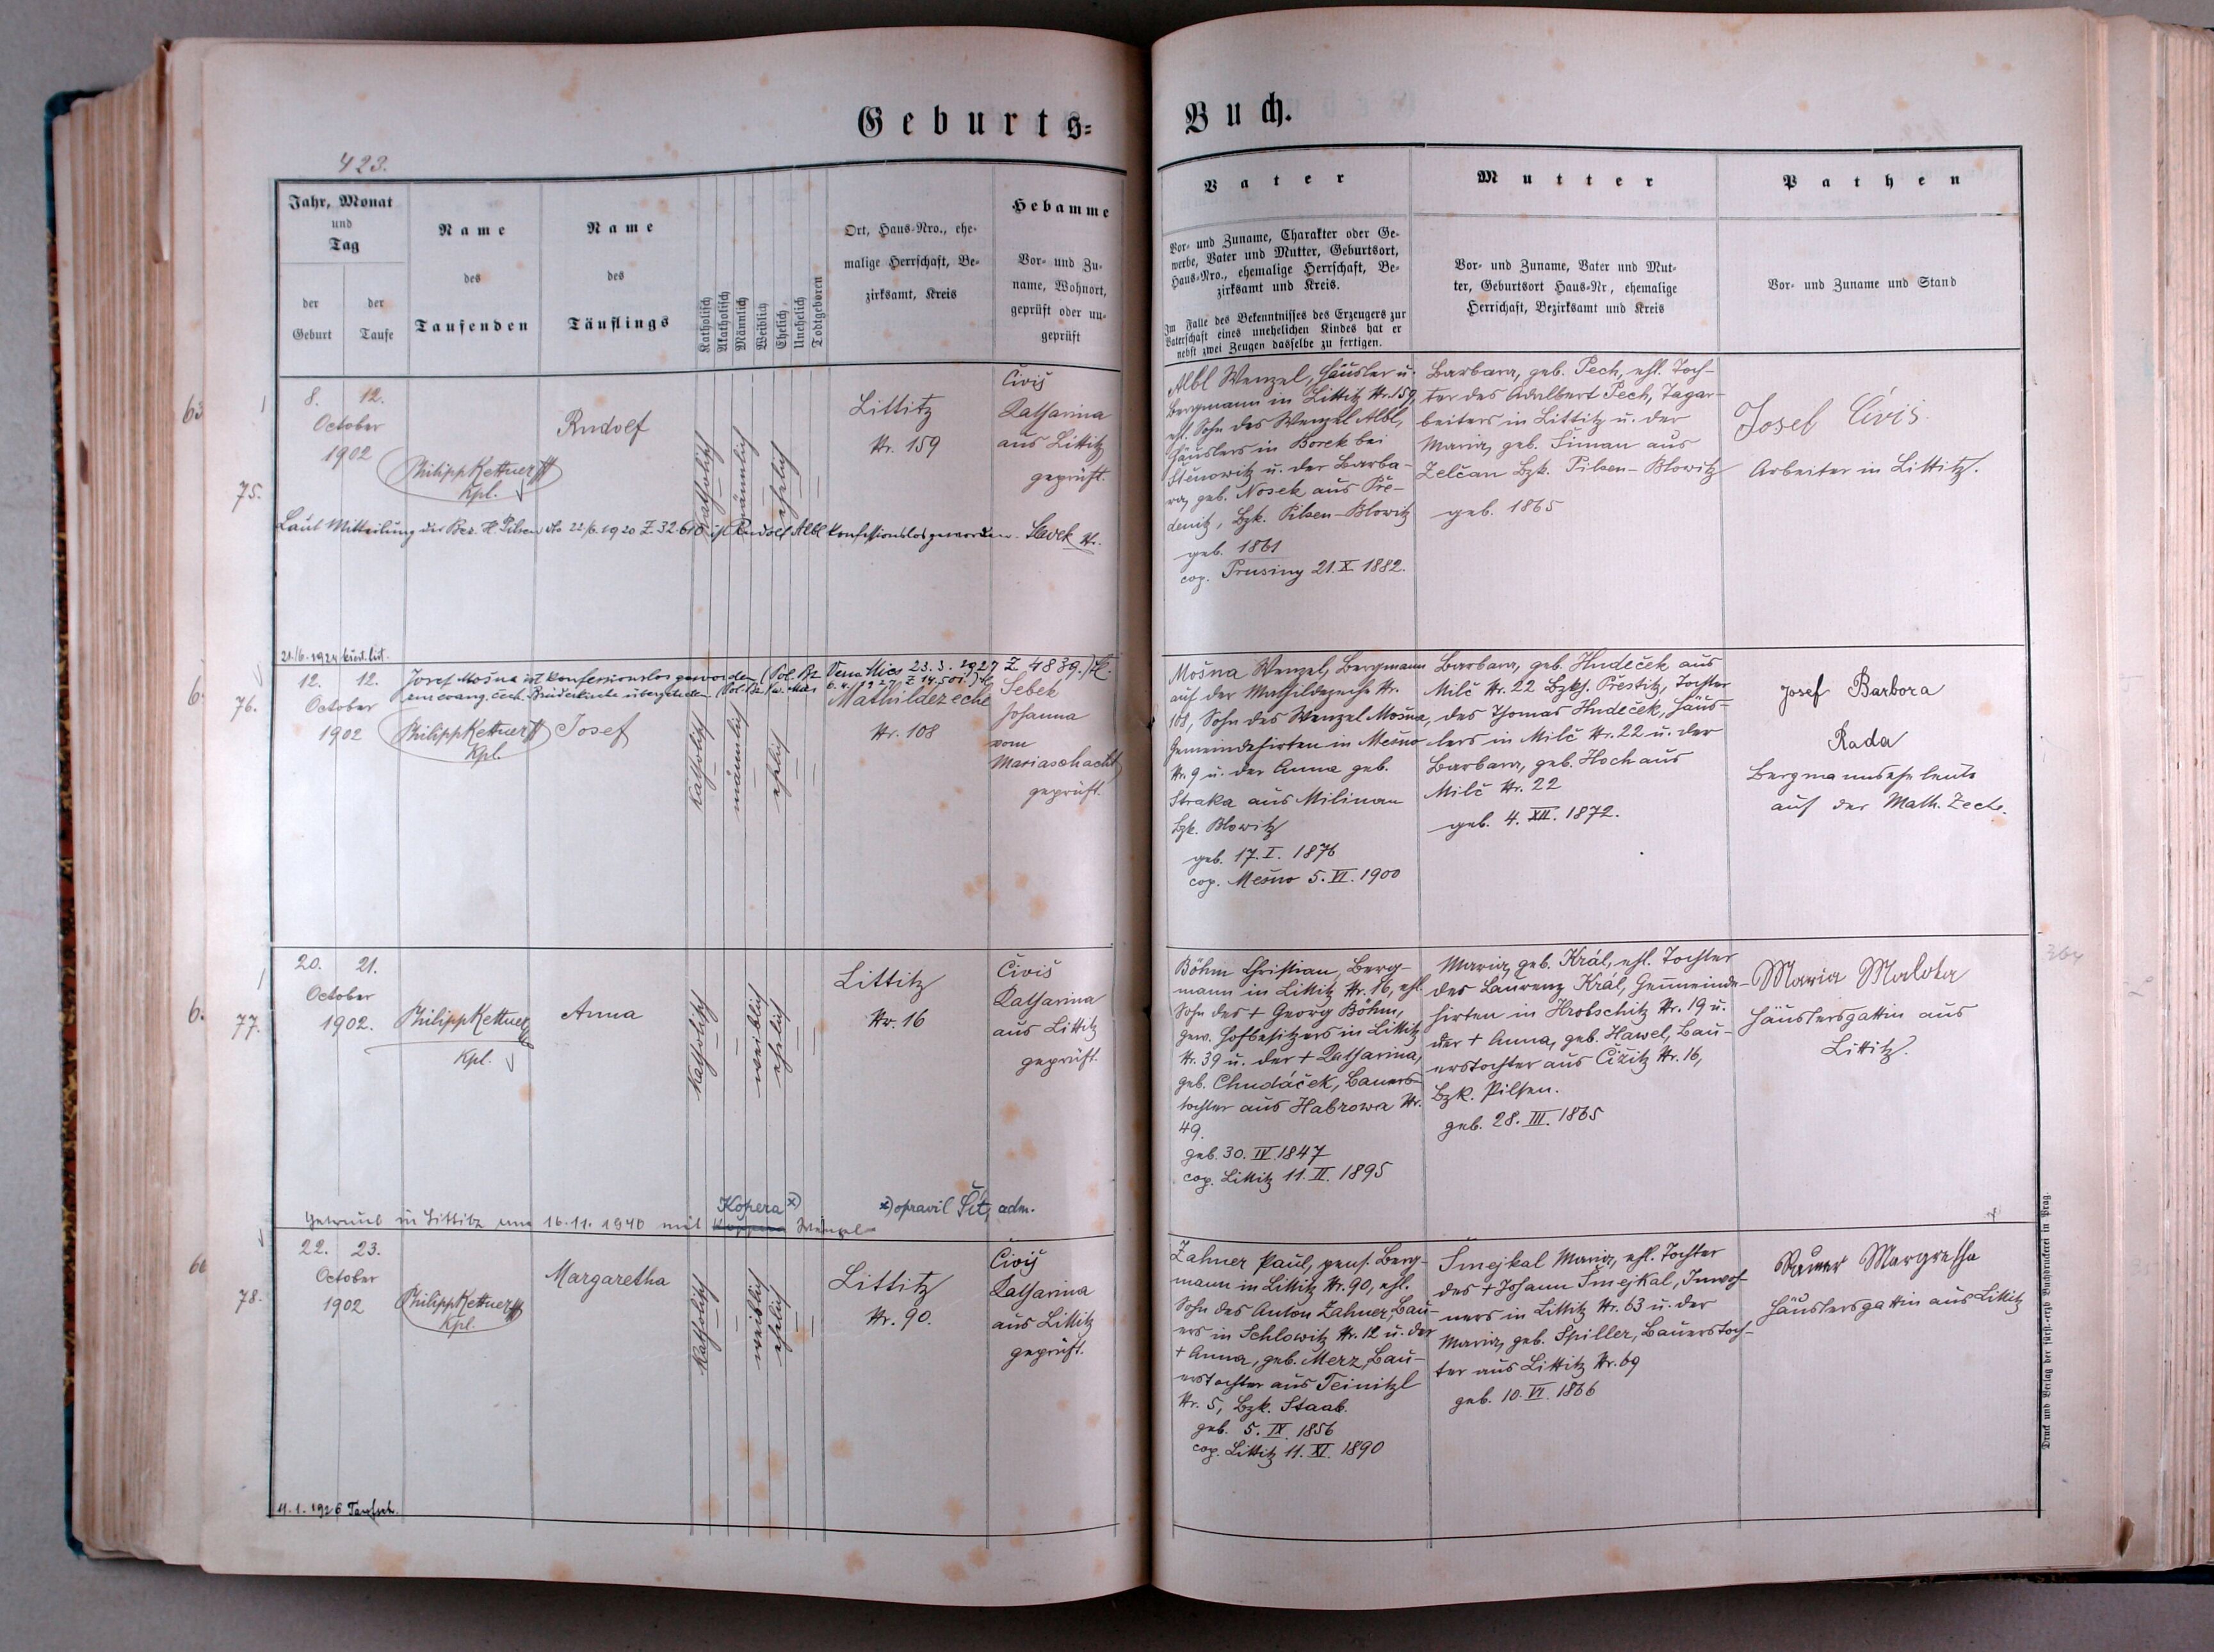 Geburts-
Buch.
423.
Jahr, Monat
und
Tag
der
Geburt
der
Taufe
Name
des
Taufenden
Name
des
Täuflings
Katholisch
Akatholisch
Männlich
Weiblich
Ehelich
Unehelich
Todtgeboren
Ort, Haus-Nro., ehe-
malige Herrschaft, Be-
zirksamt, Kreis
Hebamme
Vor- und Zu-
name, Wohnort,
geprüft oder un-
geprüft
Vater
Vor- und Zuname, Charakter oder Ge-
werbe, Vater und Mutter, Geburtsort,
Haus-Nro., ehemalige Herrschaft, Be-
zirksamt und Kreis.
Im Falle des Bekenntnisses des Erzeugers zur
Vaterschaft eines unehelichen Kindes hat er
nebst zwei Zeugen dasselbe zu fertigen.
Mutter
Vor- und Zuname, Vater und Mut-
ter, Geburtsort Haus-Nr, ehemalige
Herrschaft, Bezirksamt und Kreis
Pathen
Vor- und Zuname und Stand
75.
8. 12.
October
1902
Philipp Kettner
Kpl.
Rudolf
Katholisch
männlich
ehelich
Littitz
Nr. 159
Čiviš
Katharina
aus Littitz
geprüft.
Albl Wenzel, Häusler u.
Bergmann in Littitz Nr. 159,
ehl. Sohn des Wenzel Albl,
Häuslers in Borek bei
Štěnowitz u. der Barba-
ra, geb. Nosek aus Pře-
denitz, Bzk. Pilsen-Blowitz
geb. 1861
cop. Prusiny 21. X. 1882.
Barbara, geb. Pech, ehl. Toch-
ter des Adalbert Pech, Tagar-
beiters in Littitz u. der
Maria, geb. Šiman aus
Zelčan Bzk. Pilsen-Blowitz
geb. 1865
Josef Čivis
Arbeiter in Littitz.
Laut Mitteilung der Bez. H. Pilsen do 22/6. 1920 Z. 32.610 ist Rudolf Albl konfessionslos geworden.
21./6. 1924
76.
12. 12.
October
1902
Josef Mošna ist konfessionslos geworden (Pol. Bz. 23.3. 1927 Z 4839.)
Philipp Kettner
Kpl.
Josef
Katholisch
männlich
ehelich
Mathildezeche
Nr. 108
Šebek
Johanna
vom
Mariaschacht
geprüft.
Mošna Wenzel, Bergmann
auf der Mathildezeche Nr.
108, Sohn des Wenzel Mošna,
Gemeindehirten in Mešno
Nr. 9 u. der Anna geb.
Straka aus Milinau
Bzk. Blowitz
geb. 17. I. 1876
cop. Mešno 5. VI. 1900
Barbara, geb. Hudeček aus
Milč Nr. 22 Bzkh. Přestitz, Tochter
des Thomas Hudeček, Häus-
lers in Milč Nr. 22 u. der
Barbara, geb. Hoch aus
Milč Nr. 22
geb. 4. XII. 1872.
Josef Barbora
Rada
Bergmannseheleute
auf der Math. Zeche.
77.
20. 21.
October
1902.
Philipp Kettner
Kpl.
Anna
Katholisch
weiblich
ehelich
Littitz
Nr. 16
Čiviš
Katharina
aus Littitz
geprüft.
Böhm Christian, Berg-
mann in Littitz Nr. 16, ehl.
Sohn des + Georg Böhm,
gew. Hofbesitzers in Littitz
Nr. 39 u. der + Katharina,
geb. Chudáček, Bauers-
tochter aus Habrowa Nr.
49.
geb. 30. IV. 1847
cop. Littitz 11. II. 1895
Maria, geb. Král, ehl. Tochter
des Laurenz Král, Gemeinde-
hirten in Hrobschitz Nr. 19 u.
der + Anna, geb. Hawel, Bau-
erstochter aus Čižitz Nr. 16,
Bzk. Pilsen.
geb. 28. III. 1865
Maria Malota
Häuslersgattin aus
Littitz.
Kopera x)
x) opravil Šít, adm.
Getraut in Littitz am 16.11. 1940 mit Wenzel
78.
22. 23.
October
1902
Philipp Kettner
Kpl.
Margaretha
Katholisch
weiblich
ehelich
Littitz
Nr. 90.
Čiviš
Katharina
aus Littitz
geprüft.
Zahner Paul, pens. Berg-
mann in Littitz Nr. 90, ehl.
Sohn des Anton Zahner, Bau-
ers in Schlowitz Nr. 12 u. der
+ Anna, geb. Merz, Bau-
erstochter aus Teinitzl
Nr. 5, Bzk. Staab.
geb. 5. IX. 1856
cop. Littitz 11. XI. 1890
Šmejkal Maria, ehl. Tochter
des + Johann Šmejkal, Inwoh-
ners in Littitz Nr. 63 u. der
Maria, geb. Spiller, Bauerstoch-
ter aus Littitz Nr. 69
geb. 10. VI. 1866
Margretha
Häuslersgattin aus Littitz
4.1.1926 Taufsch.
Druck und Verlag der fürst.-erzb. Buchdruckerei in Prag.